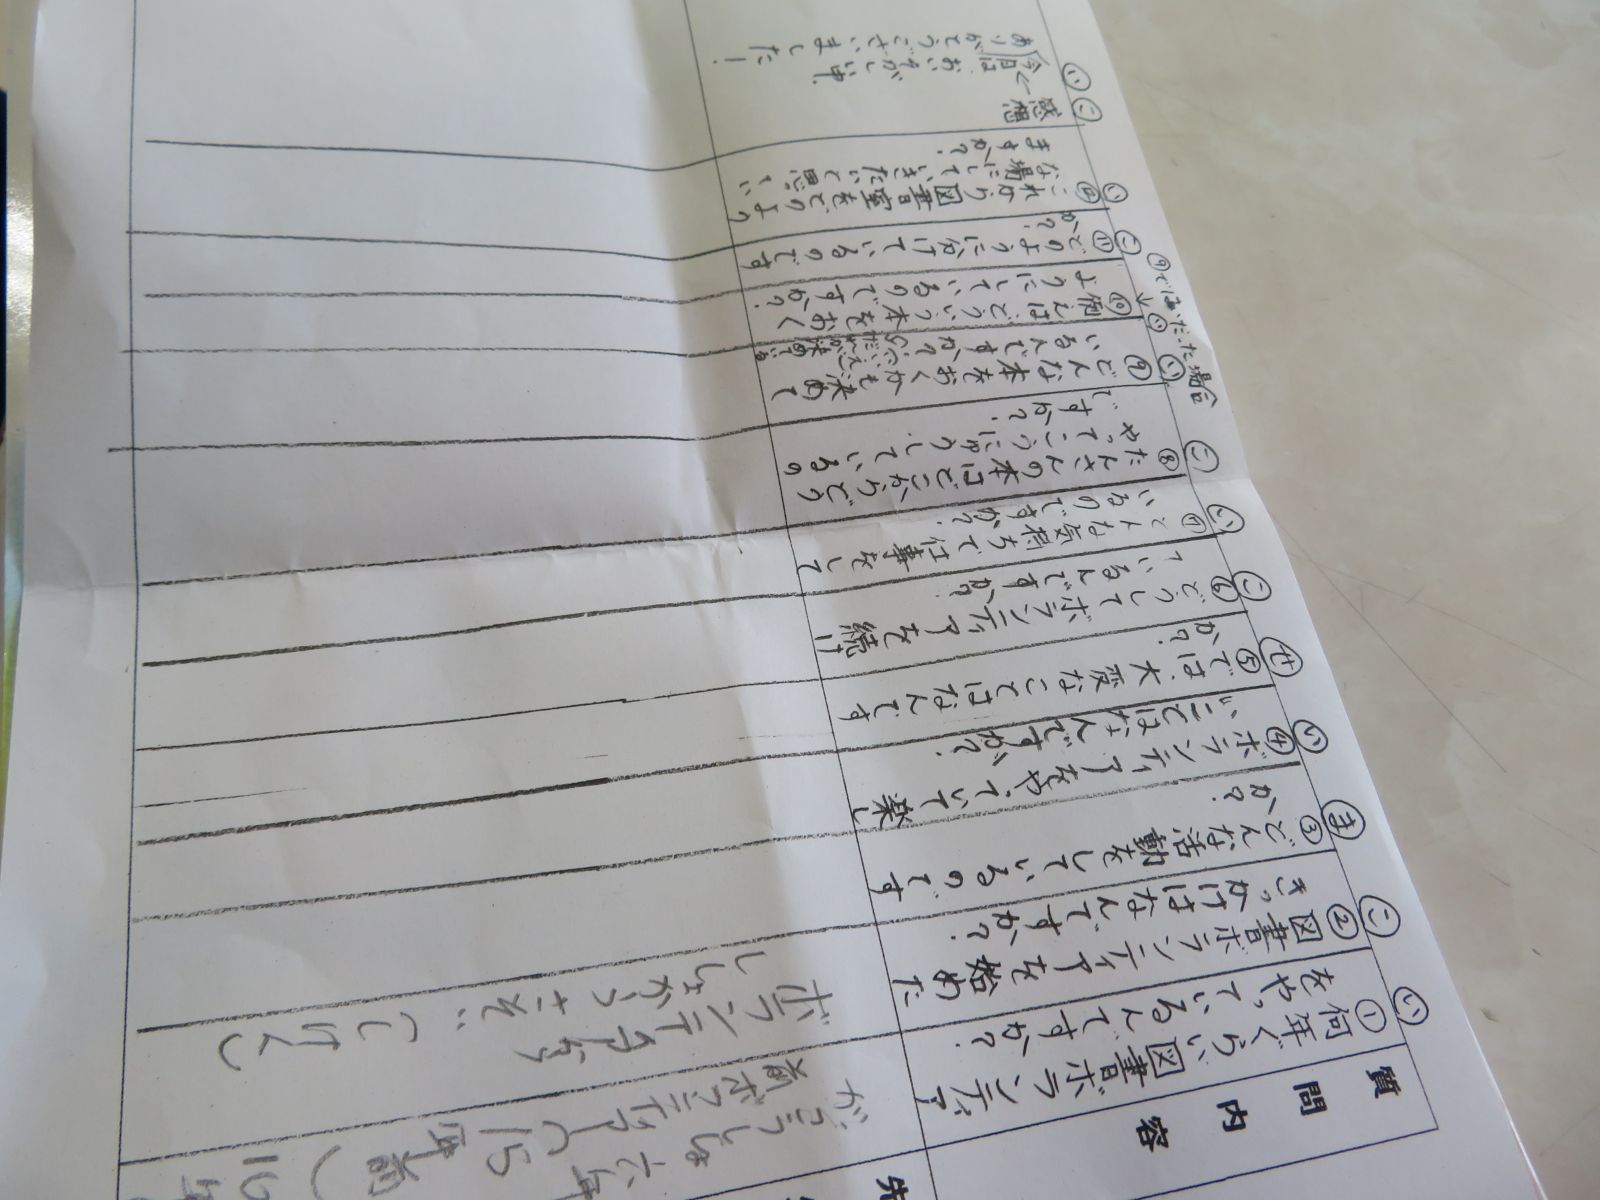 質問内容
先
㋑
①何年ぐらい図書ボランティア
をやっているんですか?
㋙
②図書ボランティアを始めた
きっかけはなんですか?
ボランテアから
㋮
③どんな活動をしているのです
か?
㋑
④ボランティアをやっていて楽し
いことはなんですか?
㋝
⑤では、大変なことはなんです
か?
㋙
⑥どうしてボランティアを続け
ているんですか?
㋑
⑦どんな気持ちで仕事をして
いるのですか?
㋙
⑧たくさんの本はどこからどう
やってこうにゅうしているの
ですか?
㋑
⑨どんな本をおくかも決めて
いるんですか?
⑨ではいだった場合
㋑
⑩例えば、どういう本をおく
ようにしているのですか?
㋙
⑪どのように分けているのです
か?
㋑
⑫これから図書室をどのよう
な場にしていきたいと思てい
ますか?
㋙
感想
㋑
今日は、おいそがしい中、
ありがとうございました!